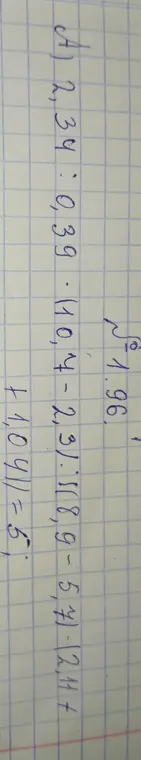 № 1.96.
А) 2,34 : 0,39 · (10,7 - 2,3) : ((8,9 - 5,7) · (2,11 +
+ 1,04)) = 5;